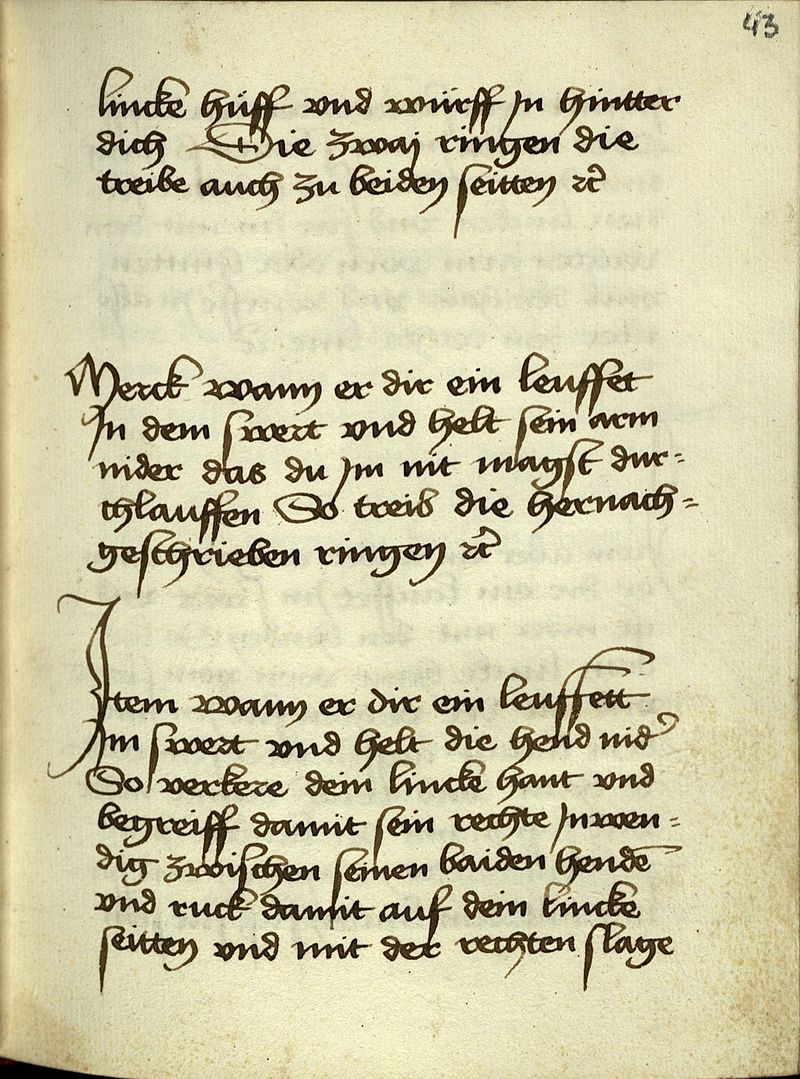 43
lincke hüff vnd würff jn hintter
dich Die zwaj ringen die
treibe auch zu beiden seitten ⁊c̄
Merck wann er dir ein leuffet
Jn dem swert vnd helt sein arm
nider das du jm nit magst dur=
chlauffen So treib die hernach=
geschrieben ringen ⁊c̄
Jtem wann er dir ein leuffett
Jm swert vnd helt die hend nid᷑
So verkere dein lincke hant vnd
begreiff damit sein rechte jnwen=
dig zwischen seinen baiden hendē
vnd ruck damit auf dein lincke
seitten vnd mit der rechten slage